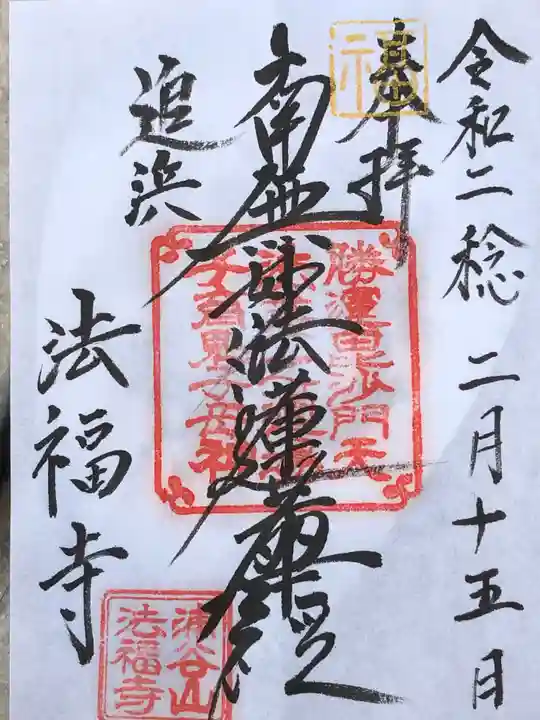 令和二稔 二月十五日
奉拝
福
南無妙法蓮華経
勝運毘沙門天
子育鬼子母神
追浜
法福寺
浦谷山
法福寺